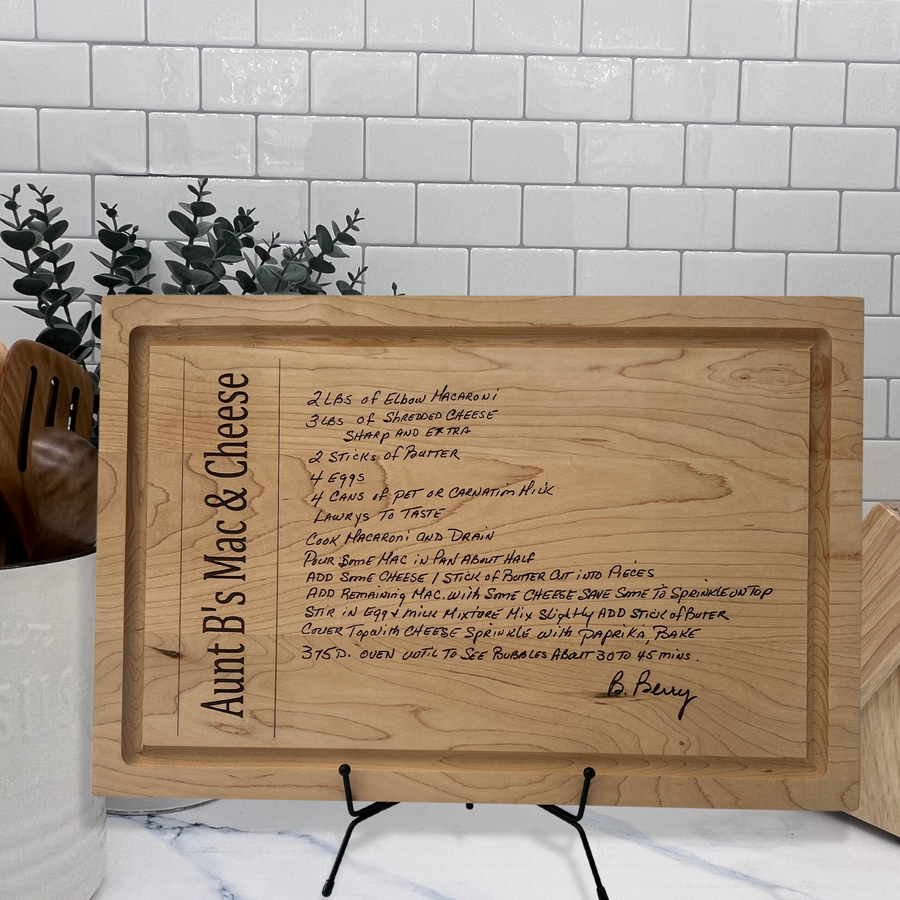 Aunt B's Mac & Cheese
2 LBS of Elbow Macaroni
3 LBS of Shredded Cheese
Sharp and Extra
2 Sticks of Butter
4 Eggs
4 Cans of Pet or Carnation Milk
Lawrys To Taste
Cook Macaroni and Drain
Pour Some Mac in Pan About Half
Add Some Cheese 1 Stick of Butter Cut into Pieces
Add Remaining Mac. with Some Cheese Save Some To Sprinkle on Top
Stir in Egg & Milk Mixtore Mix Slightly Add Stick of Buter
Cover Top with Cheese Sprinkle with Paprika, Bake
375D. oven until To See Bubbles About 30 To 45 mins.
B. Berry